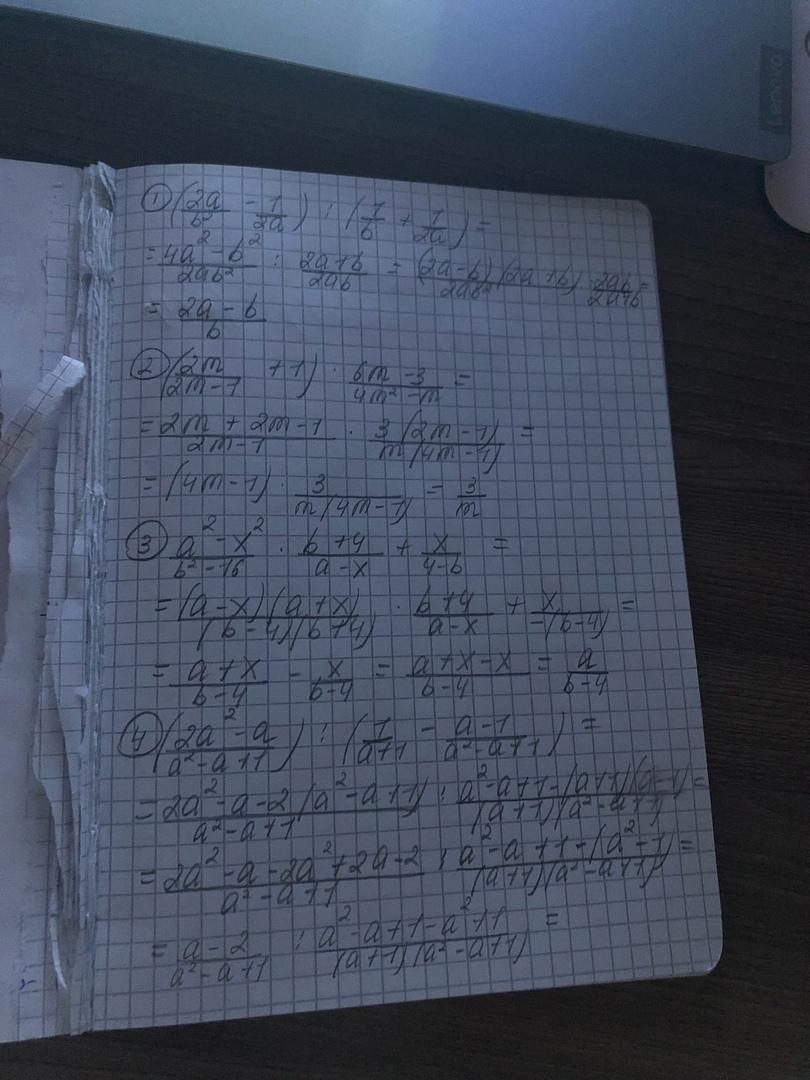 Lenovo
① (2a/b² - 1/2a) : (1/b + 1/2a) =
= 4a² - b²/2ab² : 2a+b/2ab = (2a-b)(2a+b)/2ab² · 2ab/2a+b =
= 2a - b/b
② (2m/2m-1 + 1) · 6m - 3/4m² - m =
= 2m + 2m - 1/2m - 1 · 3(2m - 1)/m(4m - 1) =
= (4m - 1) · 3/m(4m - 1) = 3/m
③ a² - x²/b² - 16 · b + 4/a - x + x/4-b =
= (a-x)(a+x)/(b-4)(b+4) · b+4/a-x + x/-(b-4) =
= a+x/b-4 - x/b-4 = a+x-x/b-4 = a/b-4
④ (2a² - a/a² - a+1) : (1/a+1 - a-1/a²-a+1) =
= 2a² - a - 2(a² - a+1)/a² - a+1 : a²-a+1-(a+1)(a-1)/(a+1)(a²-a+1) =
= 2a² - a - 2a² + 2a - 2/a² - a+1 : a² - a+1-(a²-1)/(a+1)(a²-a+1) =
= a - 2/a² - a+1 : a² - a+1 - a²+1/(a+1)(a² - a+1) =